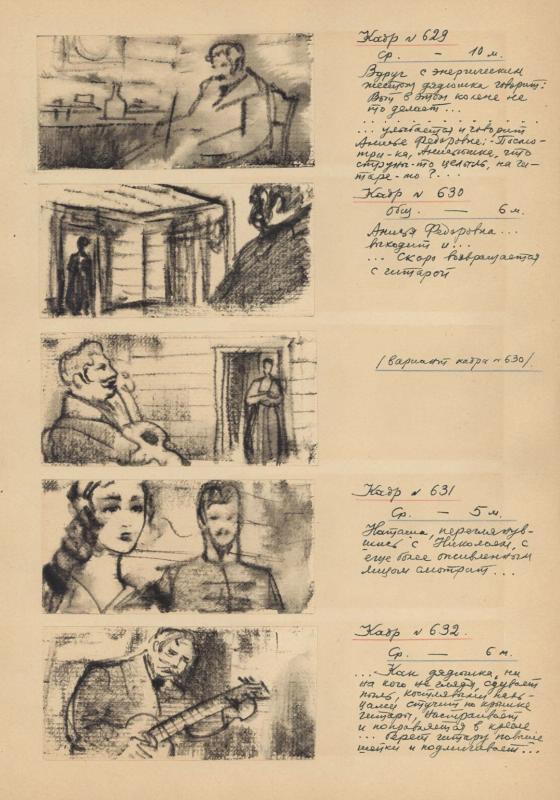 Кадр № 629
Ср. — 10 м.
Вдруг с энергическим
жестом дядюшка говорит:
Вот в этом колене не
то делает...
... улыбается и говорит
Анисье Федоровне: - Посмо-
три-ка, Анисьюшка, что
струны-то целы ль, на ги-
таре-то?...
Кадр № 630
Общ. — 6 м.
Анисья Федоровна...
выходит и...
... Скоро возвращается
с гитарой
/вариант кадра № 630/.
Кадр № 631
Ср. — 5 м.
Наташа, переглянув-
шись с Николаем, с
еще более оживленным
лицом смотрит...
Кадр № 632.
Ср. — 6 м.
... Как дядюшка, ни
на кого не глядя, сдувает
пыль, костлявыми паль-
цами стучит по крышке
гитары, настраивает
и поправляется в кресле
... берет гитару повыше
шейки и подмигивает...